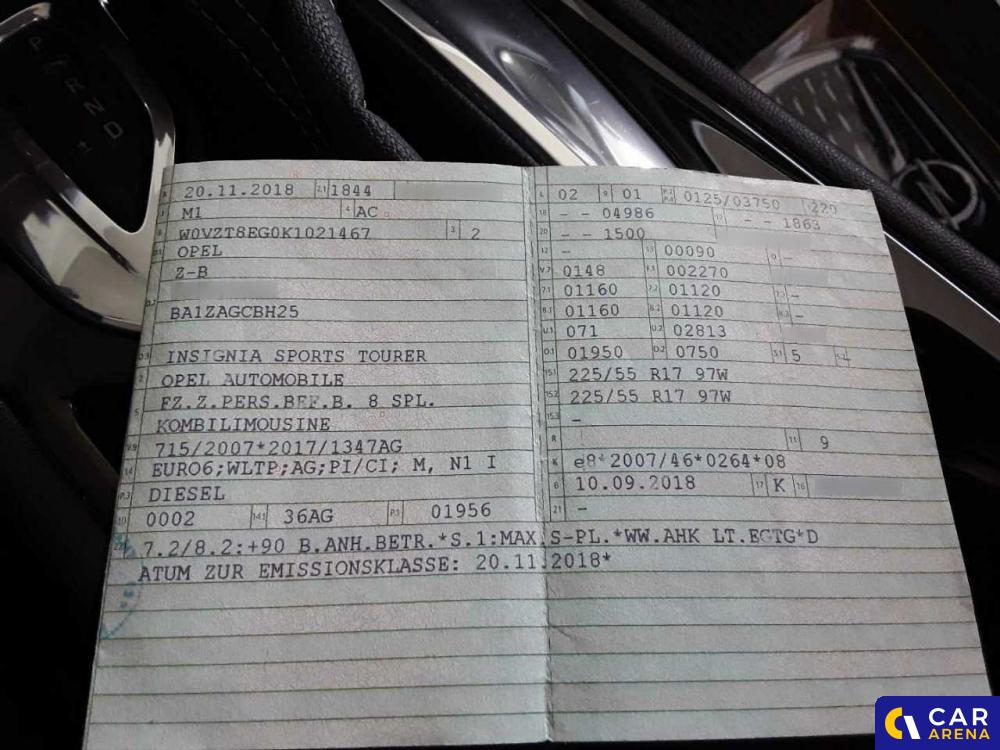 P R N D
B 20.11.2018 2.1 1844
J M1 4 AC
E W0VZT8EG0K1021467 3 2
D.1 OPEL
Z-B
D.2
BA1ZAGCBH25
D.3 INSIGNIA SPORTS TOURER
2 OPEL AUTOMOBILE
5 FZ.Z.PERS.BEF.B. 8 SPL.
KOMBILIMOUSINE
V.9 715/2007*2017/1347AG
14 EURO6;WLTP;AG;PI/CI; M, N1 I
P.3 DIESEL
10 0002 14.1 36AG P.1 01956
22 7.2/8.2:+90 B.ANH.BETR.*S.1:MAX.S-PL.*WW.AHK LT.EGTG*D
ATUM ZUR EMISSIONSKLASSE: 20.11.2018*
L 02 9 01 P.2 P.4 0125/03750 T 220
18 - - 04986 19 - - 1863
20 - - 1500
12 - 13 00090 Q -
V.7 0148 F.1 002270
7.1 01160 7.2 01120 7.3 -
8.1 01160 8.2 01120 8.3 -
U.1 071 U.2 02813
O.1 01950 O.2 0750 S.1 5 S.2
15.1 225/55 R17 97W
15.2 225/55 R17 97W
15.3 -
R 11 9
K e8*2007/46*0264*08
6 10.09.2018 17 K 16
21 -
CAR
ARENA